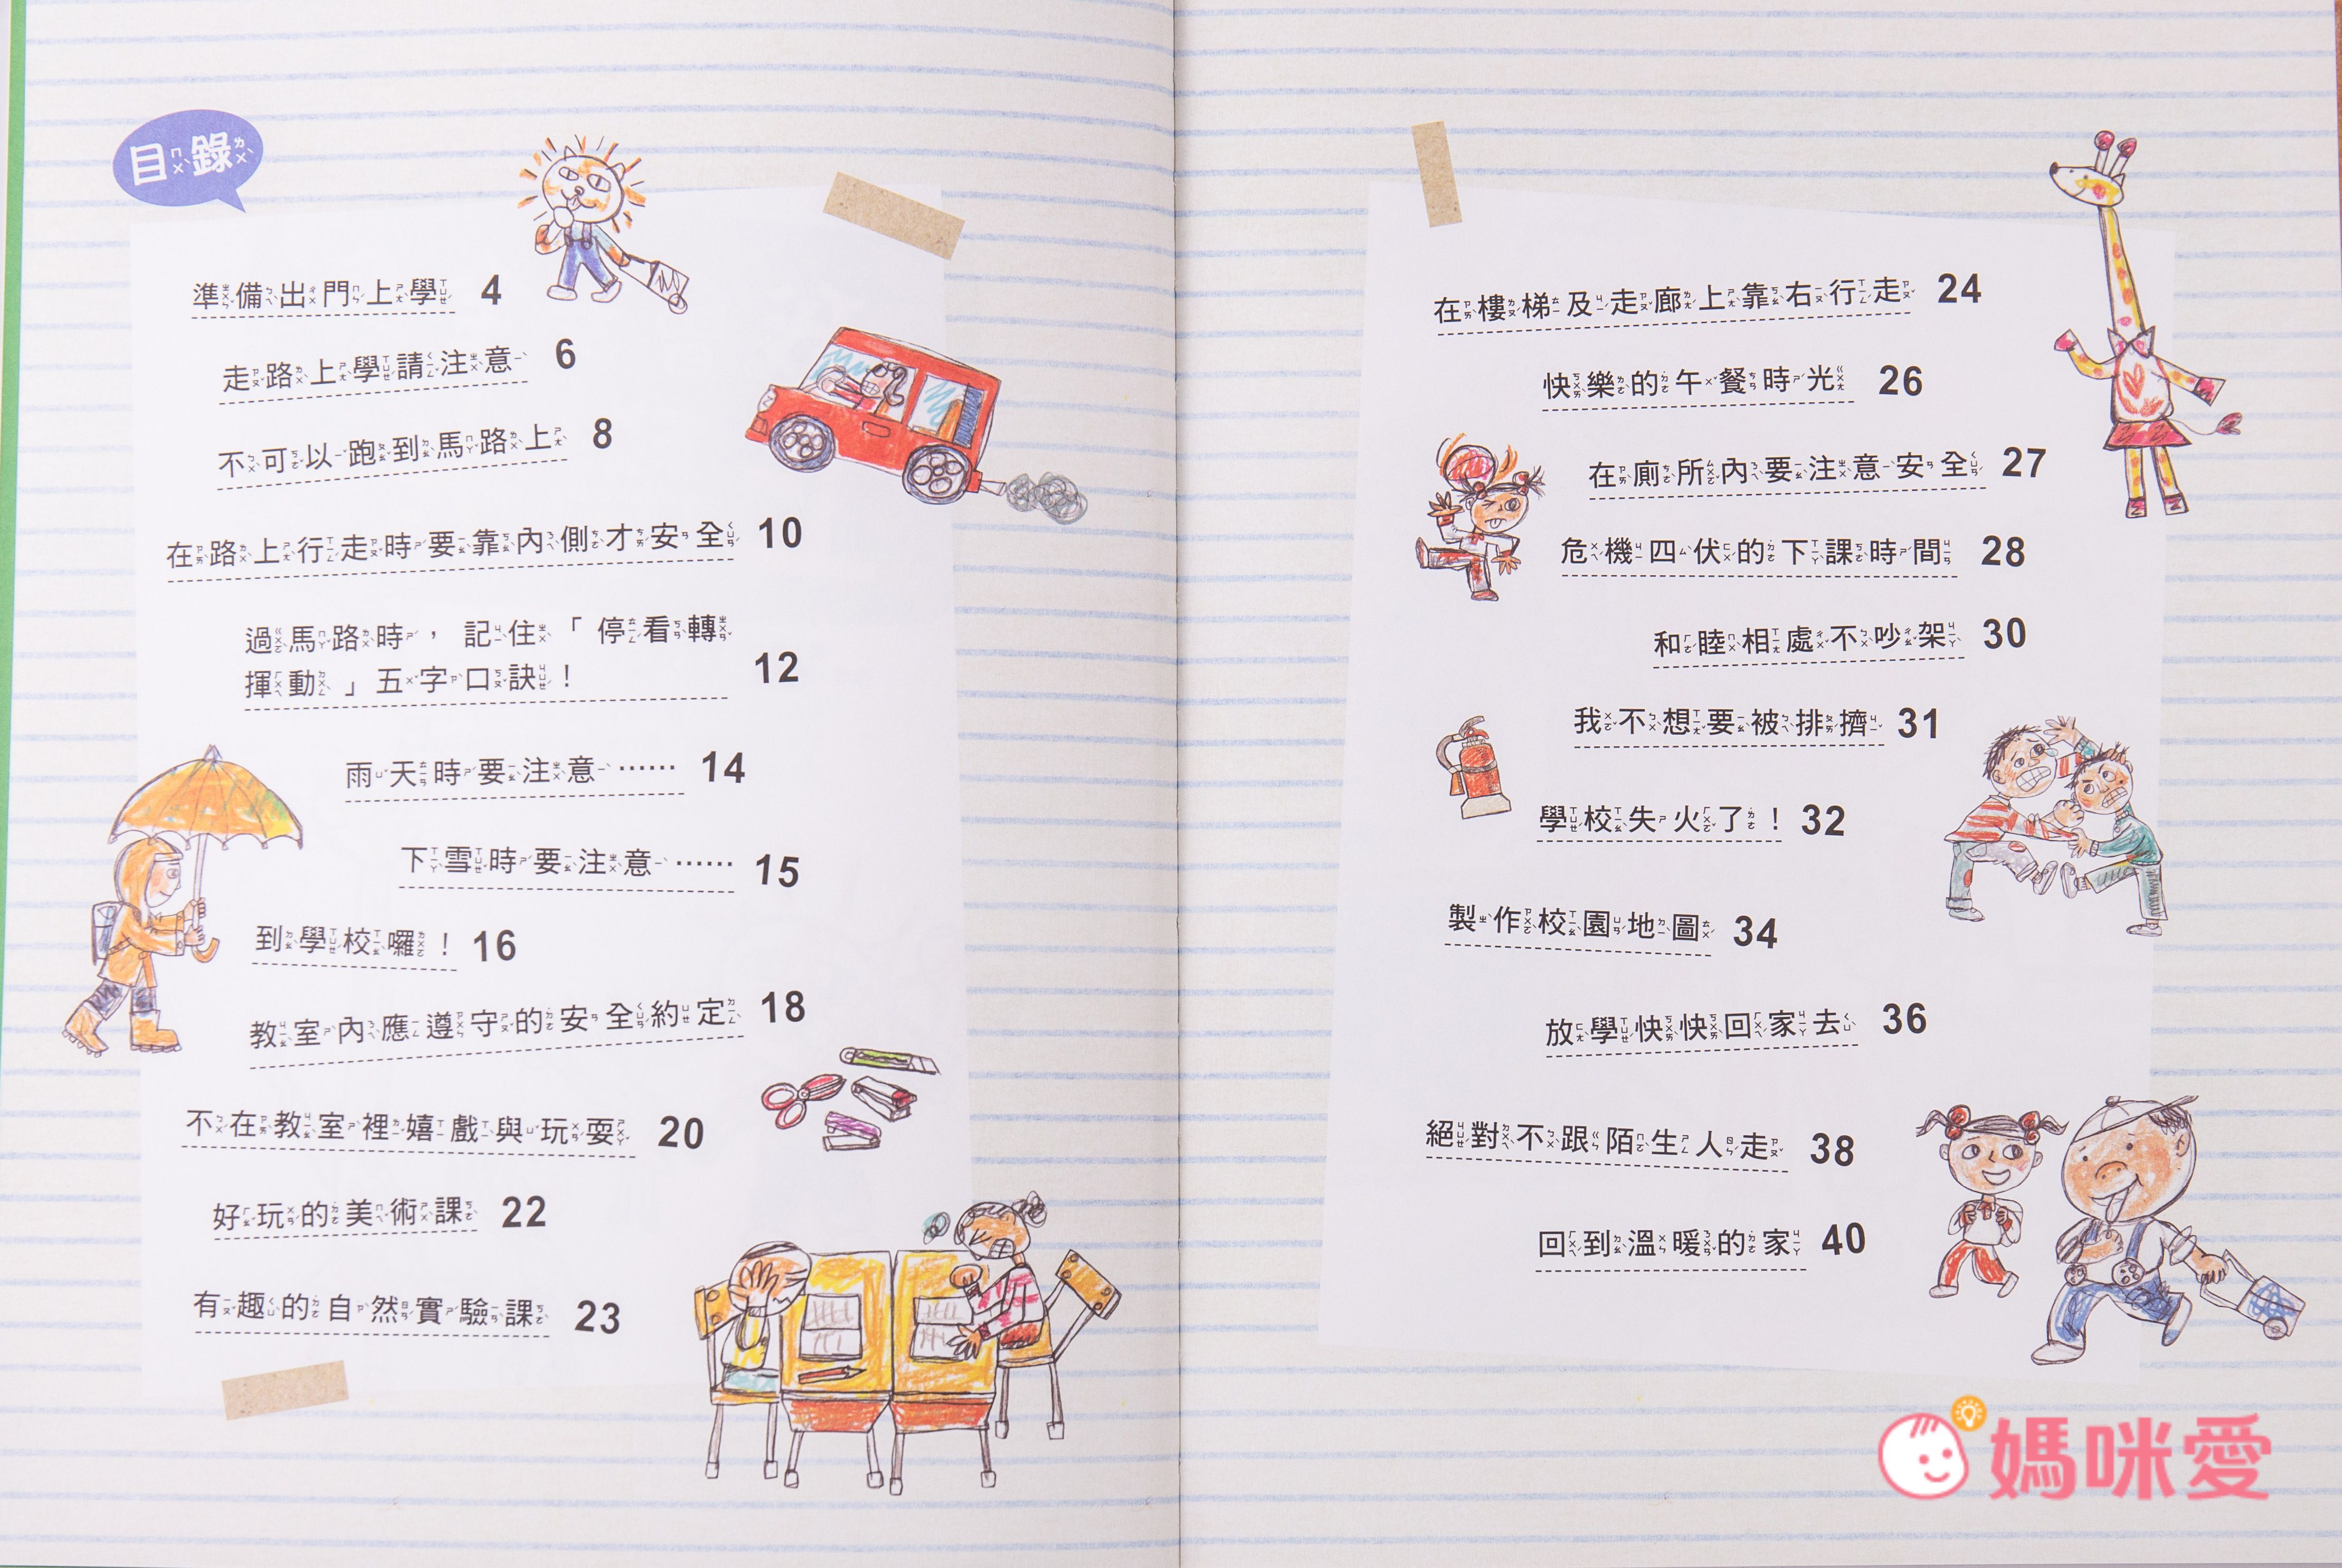 目錄
準備出門上學 4
走路上學請注意 6
不可以跑到馬路上 8
在路上行走時要靠內側才安全 10
過馬路時，記住「停看轉
揮動」五字口訣！ 12
雨天時要注意⋯⋯ 14
下雪時要注意⋯⋯ 15
到學校囉！ 16
教室內應遵守的安全約定 18
不在教室裡嬉戲與玩耍 20
好玩的美術課 22
有趣的自然實驗課 23
在樓梯及走廊上靠右行走 24
快樂的午餐時光 26
在廁所內要注意安全 27
危機四伏的下課時間 28
和睦相處不吵架 30
我不想要被排擠 31
學校失火了！ 32
製作校園地圖 34
放學快快回家去 36
絕對不跟陌生人走 38
回到溫暖的家 40
媽咪愛